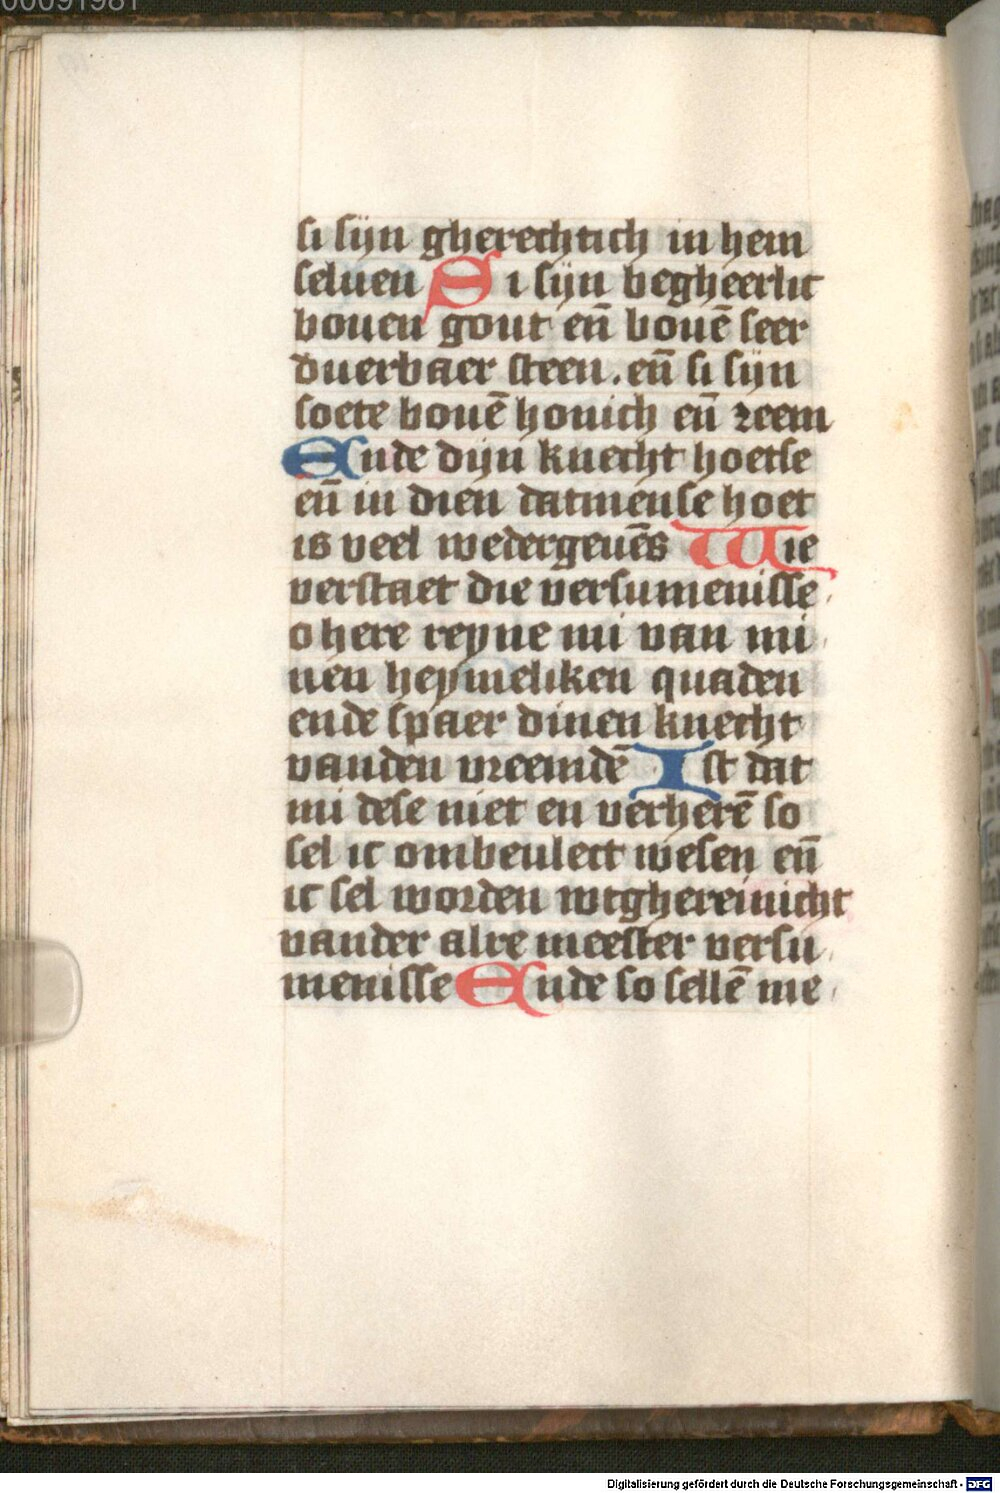 00091981
si sijn gherechtich in hem
seluen Si sijn begheerlic
bouen gout en̄ bouē seer
duerbaer steen. en̄ si sijn
soete bouē honich en̄ zeem
Ende dijn knecht hoetse
en̄ in dien datmense hoet
is veel wedergeuēs Wie
verstaet die versumenisse
o here reyne mi van mi
nen heymeliken quaden
ende spaer dinen knecht
vanden vreemdē Ist dat
mi dese niet en verherē so
sel ic ombeulect wesen en̄
ic sel worden wtghereinicht
vander alre meester versu
menisse Ende so sellē me
Digitalisierung gefördert durch die Deutsche Forschungsgemeinschaft - DFG